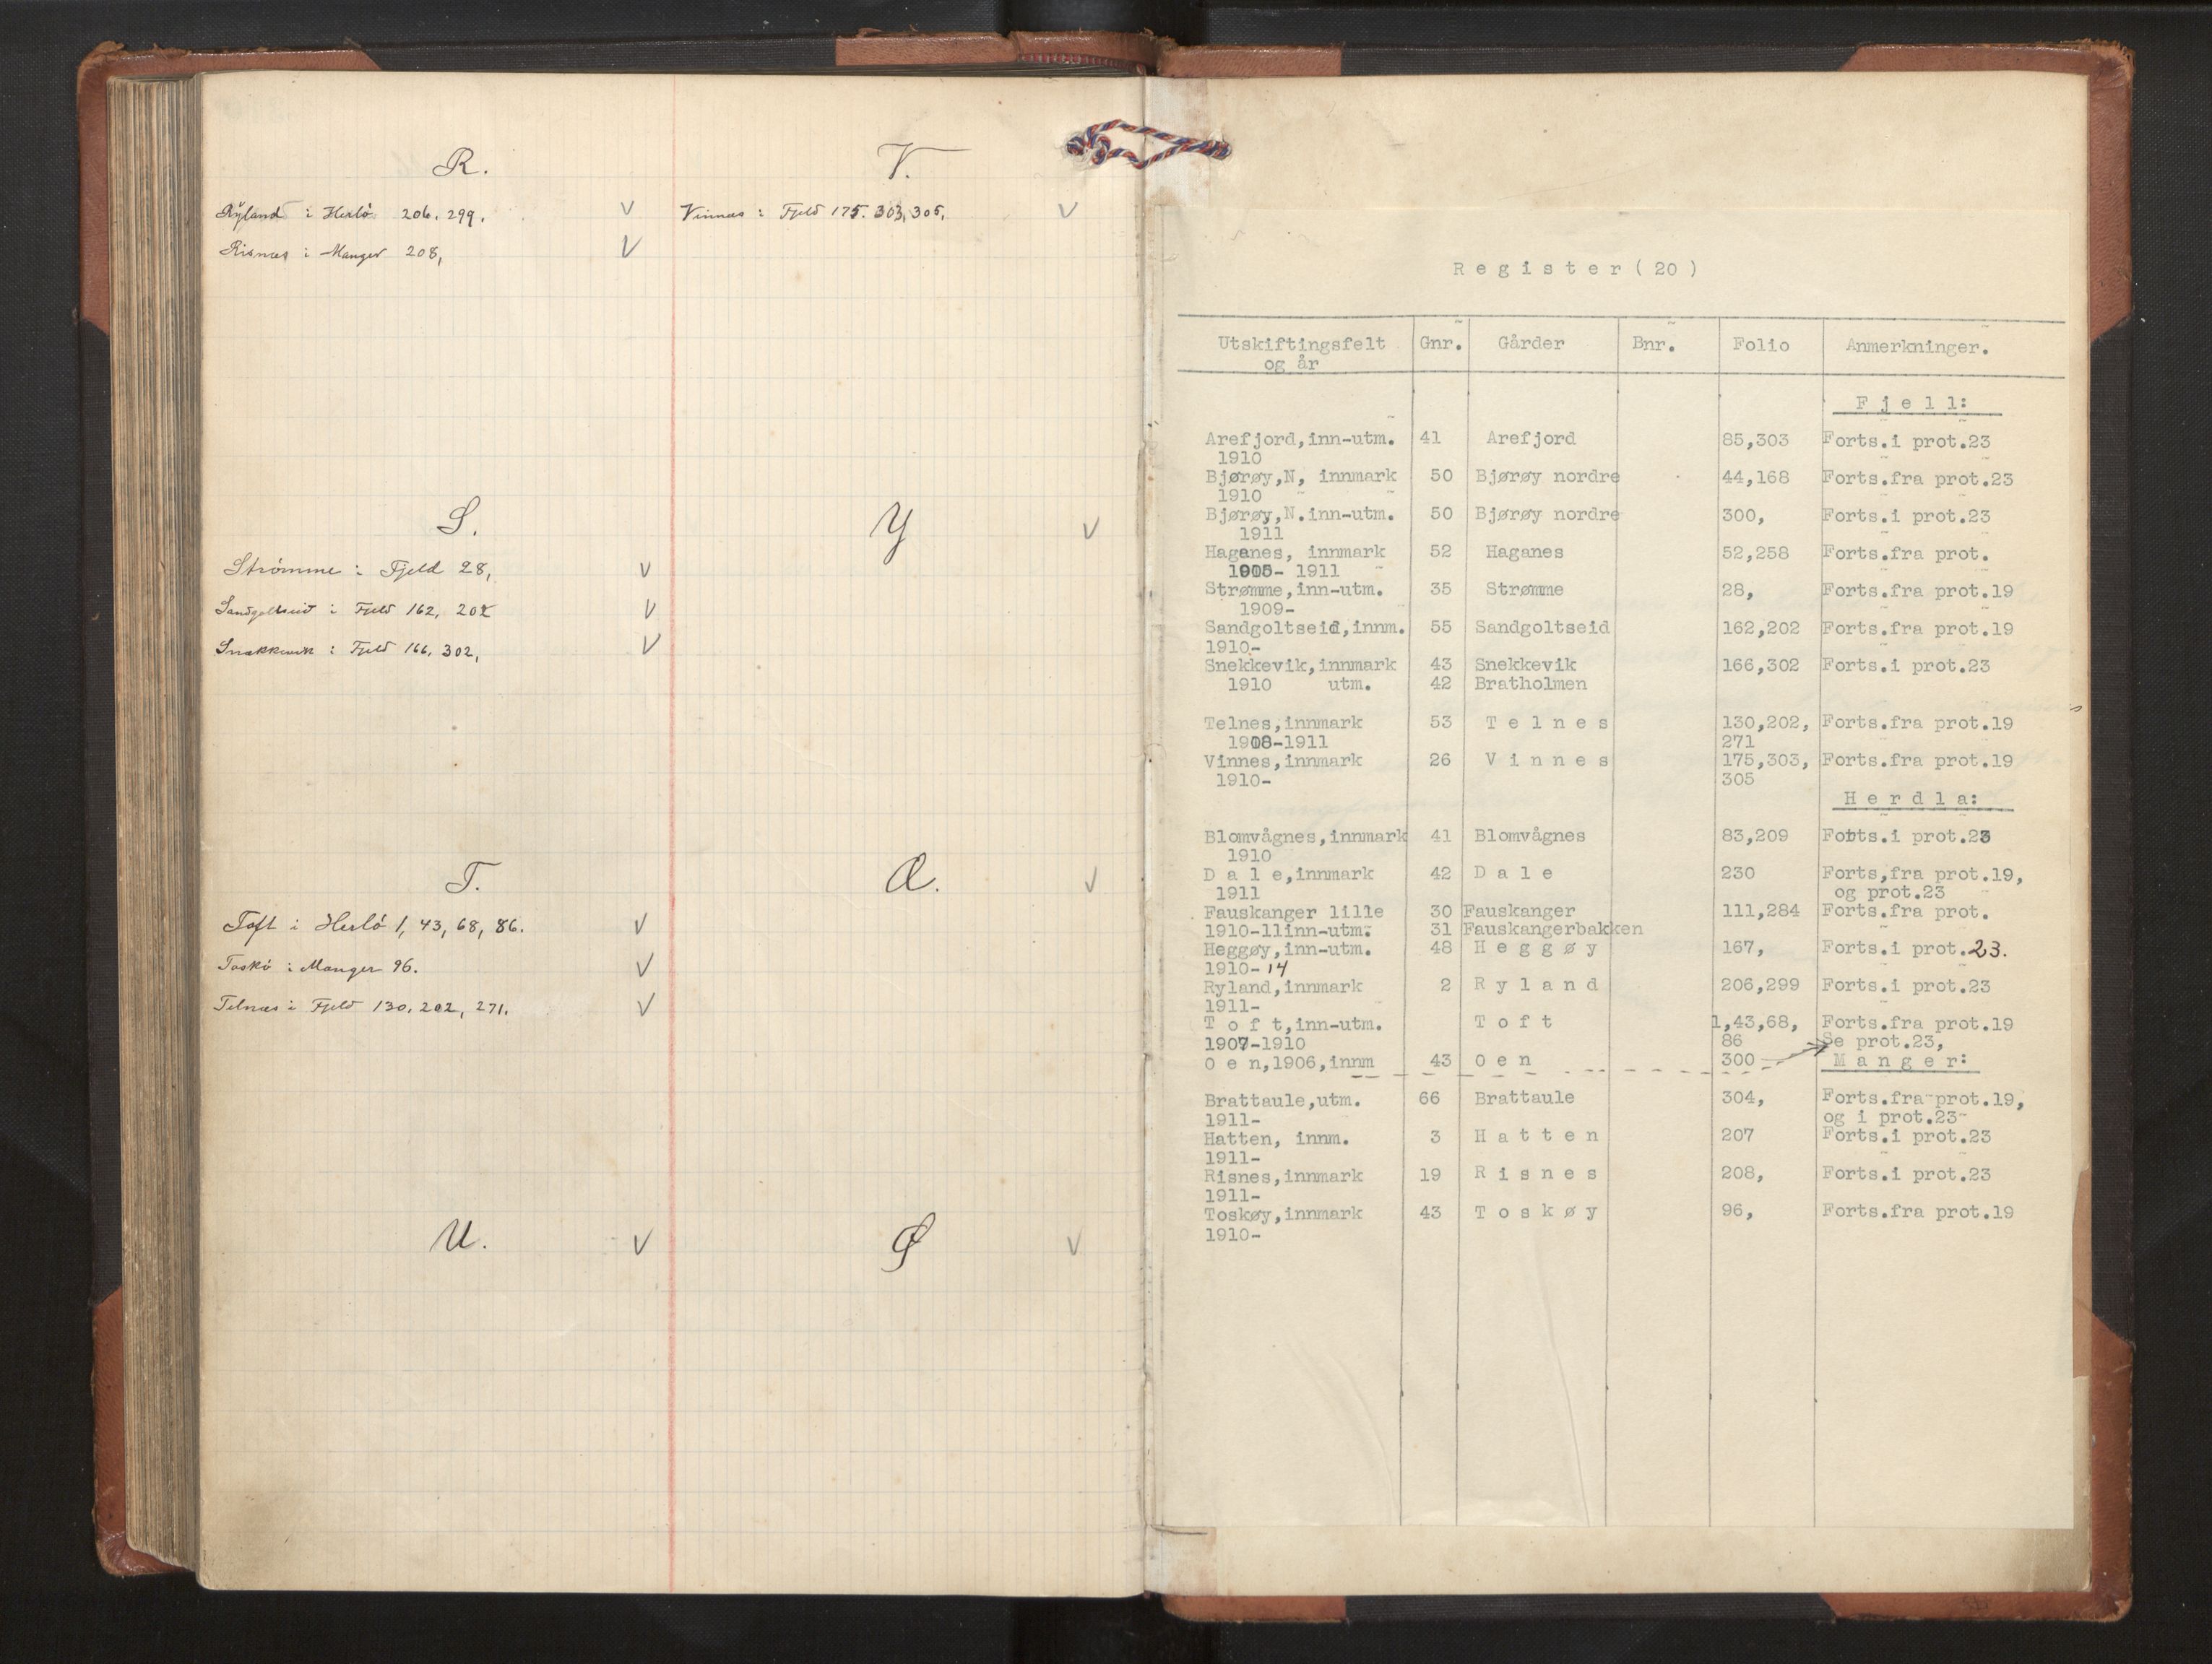 R.
Ryland i Herlö 206. 299. V
Risnæs i Manger 208, V
S.
Strömme i Fjeld 28, V
Sandgoltseid i Fjeld 162, 202 V
Snækkevik i Fjeld 166, 302, V
T.
Toft i Herlö 1, 43, 68, 86. V
Toskö i Manger 96. V
Telnæs i Fjeld 130, 202, 271. V
U. V
V.
Vinnæs i Fjeld 175. 303, 305, V
Y V
Æ. V
Ø V
Register(20)
Utskiftingsfelt Gnr. Gårder Bnr. Folio Anmerkninger.
og år
Fjell:
Arefjord,inn-utm. 41 Arefjord 85,303 Forts.i prot.23
1910
Bjørøy,N, innmark 50 Bjørøy nordre 44,168 Forts.fra prot.23
1910
Bjørøy,N.inn-utm. 50 Bjørøy nordre 300, Forts.i prot.23
1911
Haganes, innmark 52 Haganes 52,258 Forts.fra prot.
1905- 1911
Strømme,inn-utm. 35 Strømme 28, Forts.fra prot.19
1909-
Sandgoltseid,innm. 55 Sandgoltseid 162,202 Forts.fra prot.19
1910-
Snekkevik,innmark 43 Snekkevik 166,302 Forts.i prot.23
1910 utm. 42 Bratholmen
Telnes,innmark 53 Telnes 130,202, Forts.fra prot.19
1908-1911 271
Vinnes,innmark 26 Vinnes 175,303, Forts.fra prot.19
1910- 305
Herdla:
Blomvågnes,innmark 41 Blomvågnes 83,209 Forts.i prot.23
1910
Dale,innmark 42 Dale 230 Forts,fra prot.19,
1911 og prot.23
Fauskanger lille 30 Fauskanger 111,284 Forts.fra prot.
1910-11inn-utm. 31 Fauskangerbakken
Heggøy,inn-utm. 48 Heggøy 167, Forts.i prot.23.
1910-14
Ryland,innmark 2 Ryland 206,299 Forts.i prot.23
1911-
Toft,inn-utm. Toft 1,43,68, Forts.fra prot.19
1907-1910 86 Se prot.23,
Oen,1906,innm 43 Oen 300 Manger:
Brattaule,utm. 66 Brattaule 304, Forts.fra prot.19,
1911- og i prot.23
Hatten, innm. 3 Hatten 207 Forts.i prot.23
1911-
Risnes,innmark 19 Risnes 208, Forts.i prot.23
1911-
Toskøy,innmark 43 Toskøy 96, Forts.fra prot.19
1910-